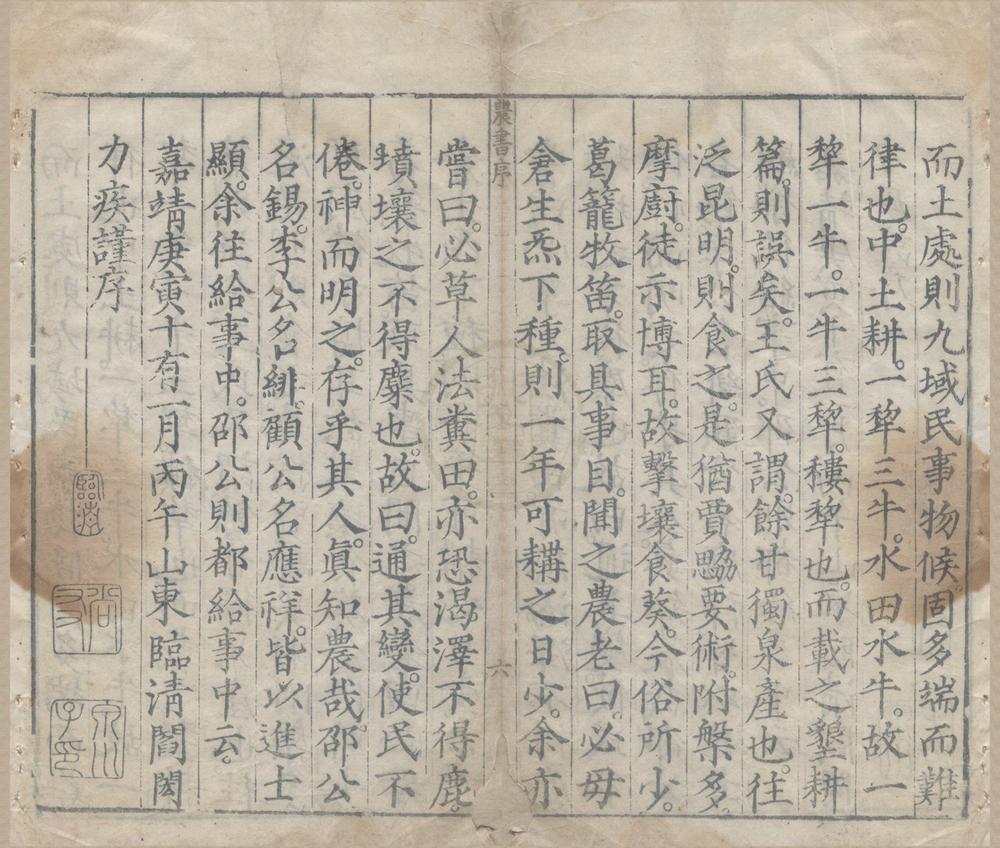 而土處則九域民事物候。固多端而難
律也。中土耕。一犂三牛。水田水牛。故一
犂一牛。一牛三犂。耬犂也。而載之墾耕
篇。則誤矣。王氏又謂。餘甘。獨泉產也。往
泛昆明。則食之。是猶賈勰要術。附槃多
摩廚。徒示博耳。故擊壤食葵。今俗所少。
葛籠牧笛。取具事目。聞之農老曰。必毋
倉生炁下種。則一年可耩之日少。余亦
農書序
六
嘗曰。必草人法糞田。亦恐渴澤不得鹿。
墳壤之不得麋也。故曰。通其變。使民不
倦。神而明之。存乎其人。眞知農哉。邵公
名錫。李公名緋。顧公名應祥。皆以進士
顯。余往給事中。邵公則都給事中云。
嘉靖庚寅十有一月丙午山東臨清閻閎
力疾謹序